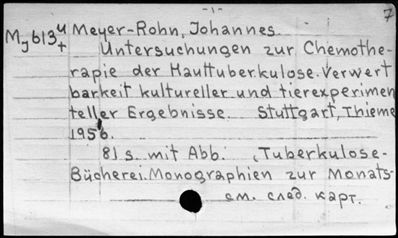 - 1 - 7
Mj 613 u/+ Meyer-Rohn, Johannes
Untersuchungen zur Chemothe-
rapie der Hauttuberkulose. Verwert
barkeit kultureller und tierexperimen
teller Ergebnisse. Stuttgart, Thieme
1956.
81 s. mit Abb. (Tuberkulose-
Bücherei. Monographien zur Monats-
см. след. карт.